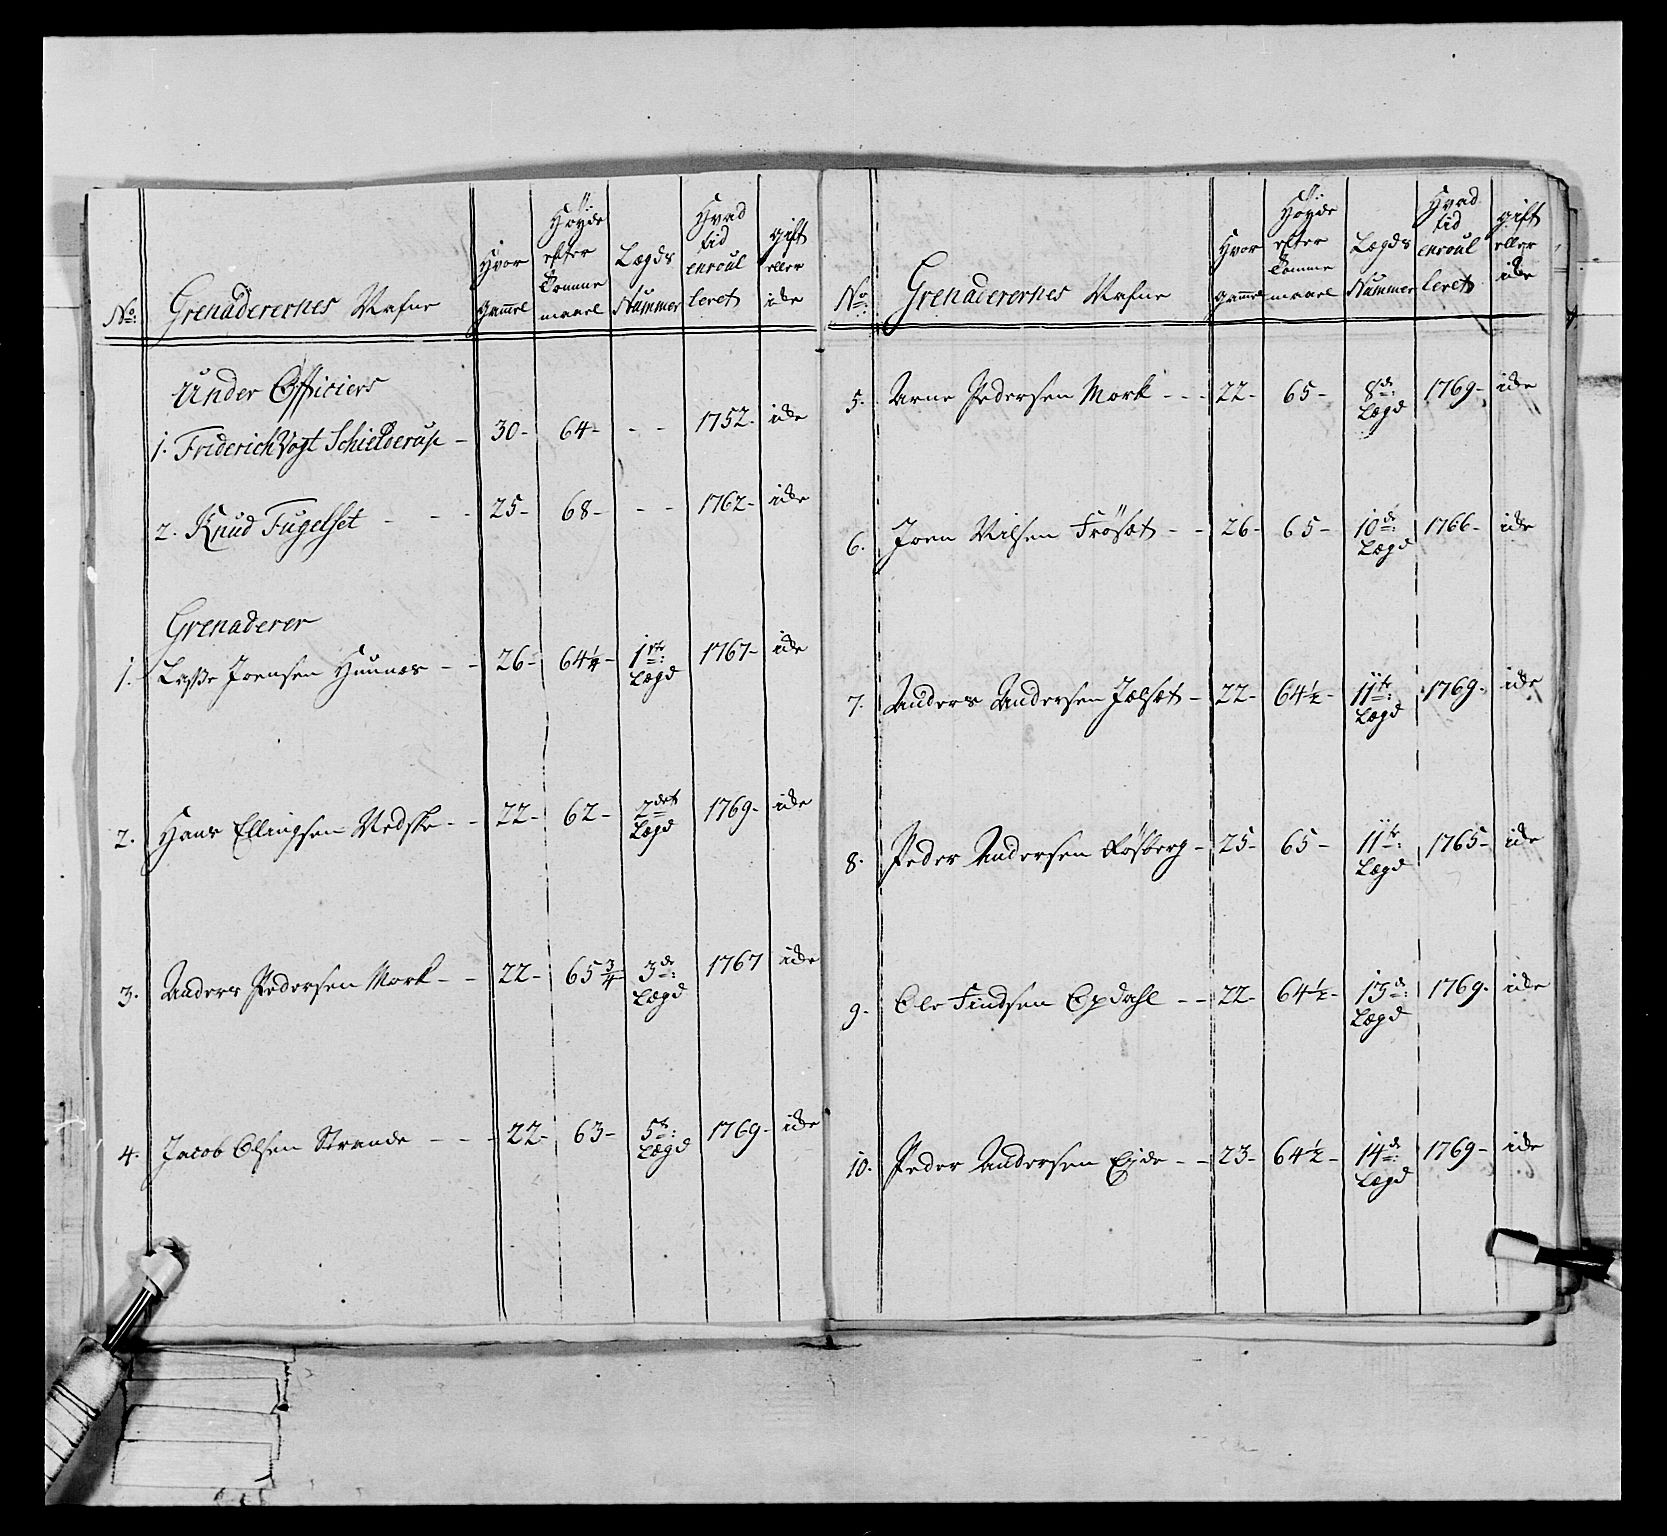 No: Grenaderernes Nafne Hvor gammel Høyde efter Tomme maael Lægds Nummer Hvad tid enroulleret gift eller icke
Under Officiers
1. Friderich Vogt Schielderup - 30- 64- - - 1752- icke
2. Knud Fugelset - - - 25- 68- - - 1762- icke
Grenaderer
1. Lasse Joensen Hunnes - - 26- 64¼- 1ste: Lægd 1767- icke
2. Hans Ellingsen Nedske - - 22- 62- 2det Lægd 1769- icke
3. Anders Pedersen Mork - - 22- 65¾ 3de: Lægd 1767 icke
4. Jacob Olsen Strande - - - 22- 63- 5te: Lægd 1769- icke
No: Grenaderernes Nafne Hvor gammel Høyde efter Tomme maael Lægds Nummer Hvad tid enroulleret gift eller icke
5. Arne Pedersen Mork - - - 22- 65- 8de: Lægd 1769- icke
6. Joen Nilsen Frösæt - - 26- 65- 10de: Lægd 1766- icke
7. Anders Andersen Jælsæt - 22- 64½- 11te: Lægd 1769- icke
8. Peder Andersen Røsberg - 25- 65- 11te: Lægd 1765- icke
9. Ole Findsen Opdahl - - 22- 64½- 13de: Lægd 1769- icke
10. Peder Andersen Eide - - 23- 64½- 14de: Lægd 1769- icke